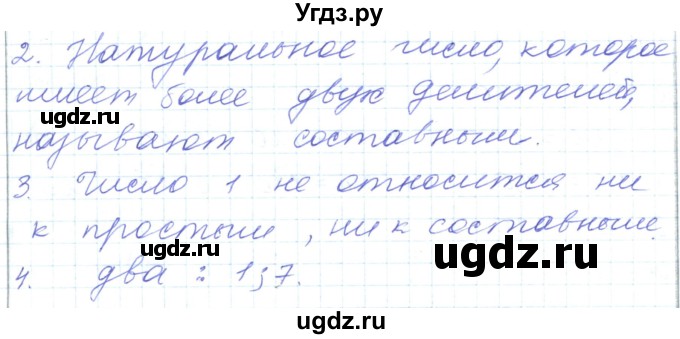 Угдз.ру
2. Натуральное число, которое
имеет более двух делителей,
ugdz.ru
называют составным.
ugdz.ru
3. Число 1 не относится ни
к простым, ни к составным.
ugdz.ru
ugdz.ru
4. два : 1; 7.
ugdz.ru